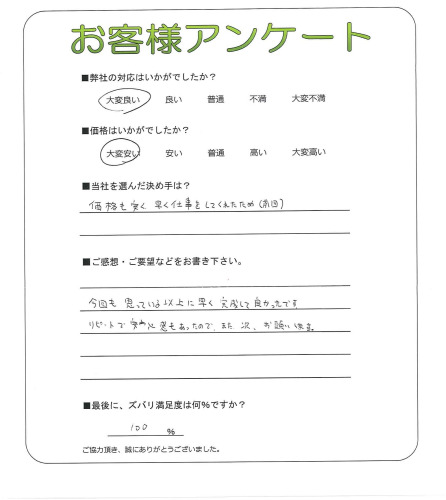 お客様アンケート
■弊社の対応はいかがでしたか？
大変良い 良い 普通 不満 大変不満
■価格はいかがでしたか？
大変安い 安い 普通 高い 大変高い
■当社を選んだ決め手は？
価格も安く 早く仕事をしてくれたため(前回)
■ご感想・ご要望などをお書き下さい。
今回も 思っていた以上に早く 完成して良かったです。
リピートで もあったので、また 次、お願いします。
■最後に、ズバリ満足度は何％ですか？
100 ％
ご協力頂き、誠にありがとうございました。